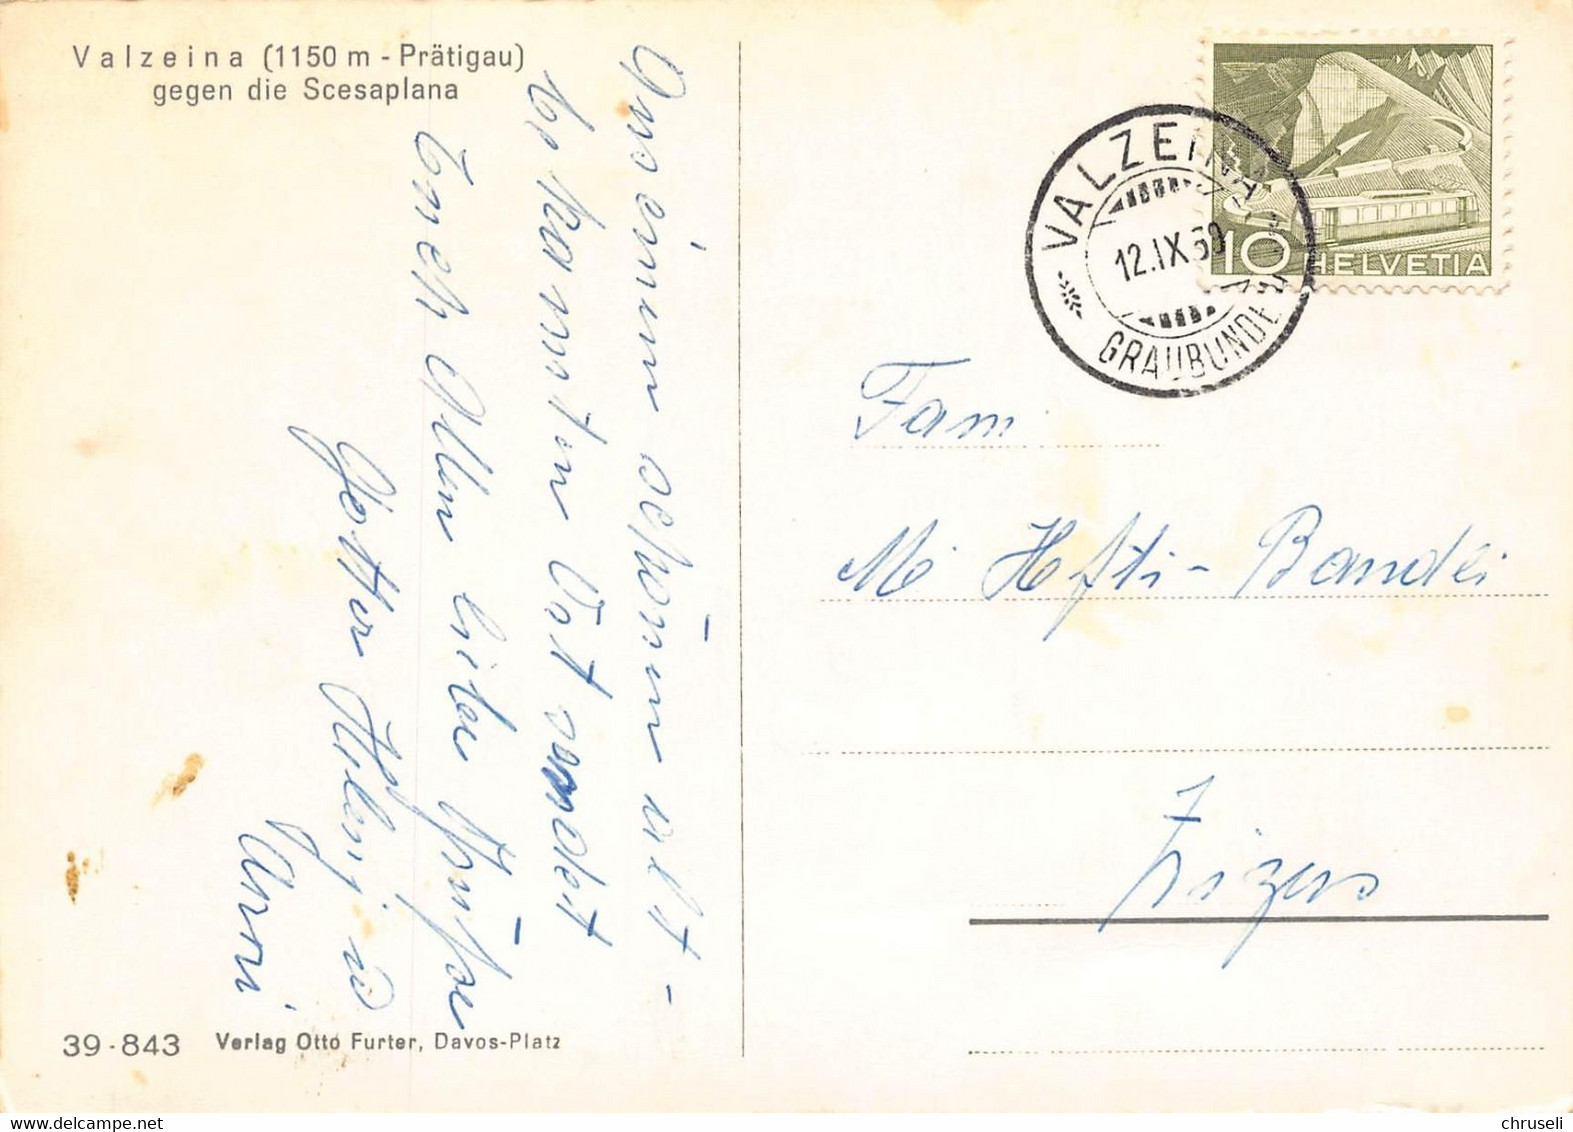 Valzeina (1150 m - Prätigau)
gegen die Scesaplana
Von einem schönen alt-
bekannten Ort sendet
Euch Allen liebe Grüsse
Gotte Hedwig u
Anni
39-843 Verlag Otto Furter, Davos-Platz
VALZEINA
12.IX.60
GRAUBUNDEN
10 HELVETIA
Fam
M. Hefti-Bandli
Zizers
chruseli